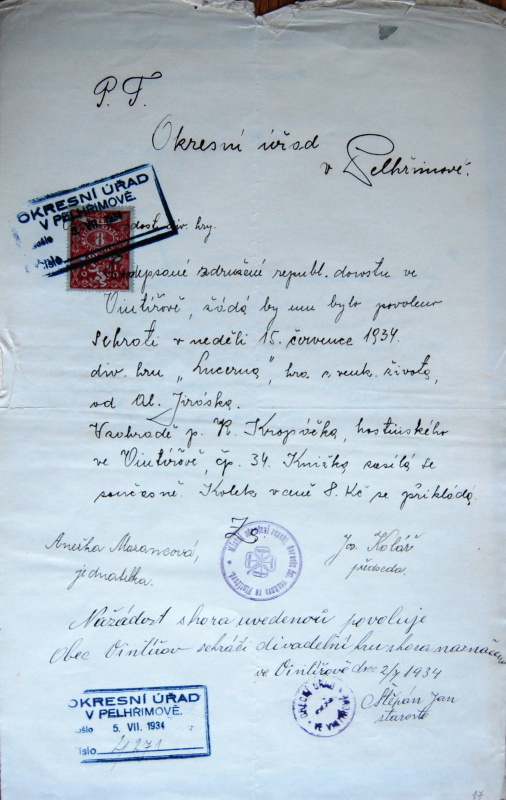 P. T.
Okresní úřad
v Pelhřimově.
OKRESNÍ ÚŘAD
V PELHŘIMOVĚ.
došlo 5. VII. 1934
Číslo
8
div. hry.
sdružení republ. dorostu ve
Vintířově, žádá by mu bylo povoleno
sehrati v neděli 15. července 1934.
div. hru „Lucerna", hra z venk. života,
od Al. Jiráska.
V zahradě p. R. Kropáčka, hostinského
ve Vintířově, čp. 34. Knížka zasílá se
současně. Kolek v ceně 8. Kč se přikládá.
Anežka Marancová,
jednatelka.
Jos. Kolář
předseda.
Na žádost shora uvedenou povoluje
obec Vintířov sehráti divadelní hru shora naznačenou
ve Vintířově dne 2/7 1934
Štěpán Jan
starosta
OKRESNÍ ÚŘAD
V PELHŘIMOVĚ.
došlo 5. VII. 1934
Číslo 4271
17